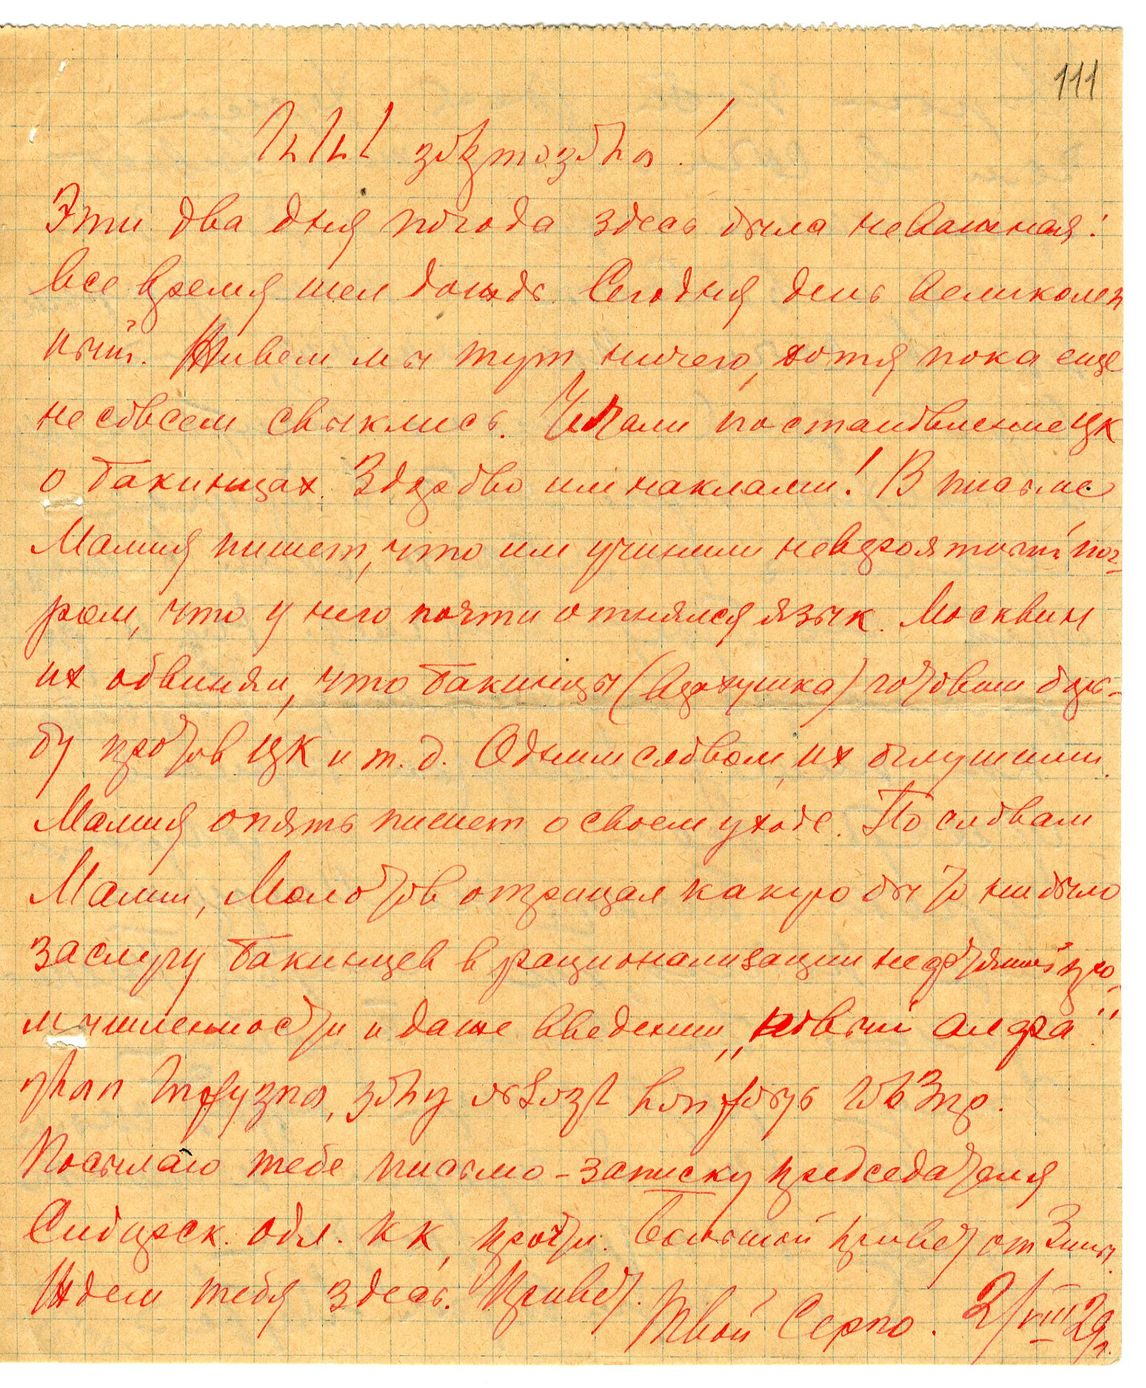 111
Эти два дня погода здесь была неважная:
все время шел дождь. Сегодня день великолеп
ный. Живем мы тут ничего, хотя пока еще
не совсем свыклись. Читали постановление ЦК
о бакинцах. Здорово им наклали! В письме
Мамия пишет, что им учинили невероятный пог-
ром, что у него почти отнялся язык. Москвин
их обвинял, что бакинцы (верхушка) готовили борь-
бу против ЦК и т. д. Одним словом, их оглушили.
Мамия опять пишет о своем уходе. По словам
Мамии, Молотов отрицал какую бы то ни было
заслугу бакинцев в рационализации нефтяной про
мышленности и даже введении „новый
Посылаю тебе письмо-записку председателя
Сибирск. обл. КК, прочти. Большой привет от Зины.
Ждем тебя здесь. Привет.
Твой Серго. 2/VIII 29 г.